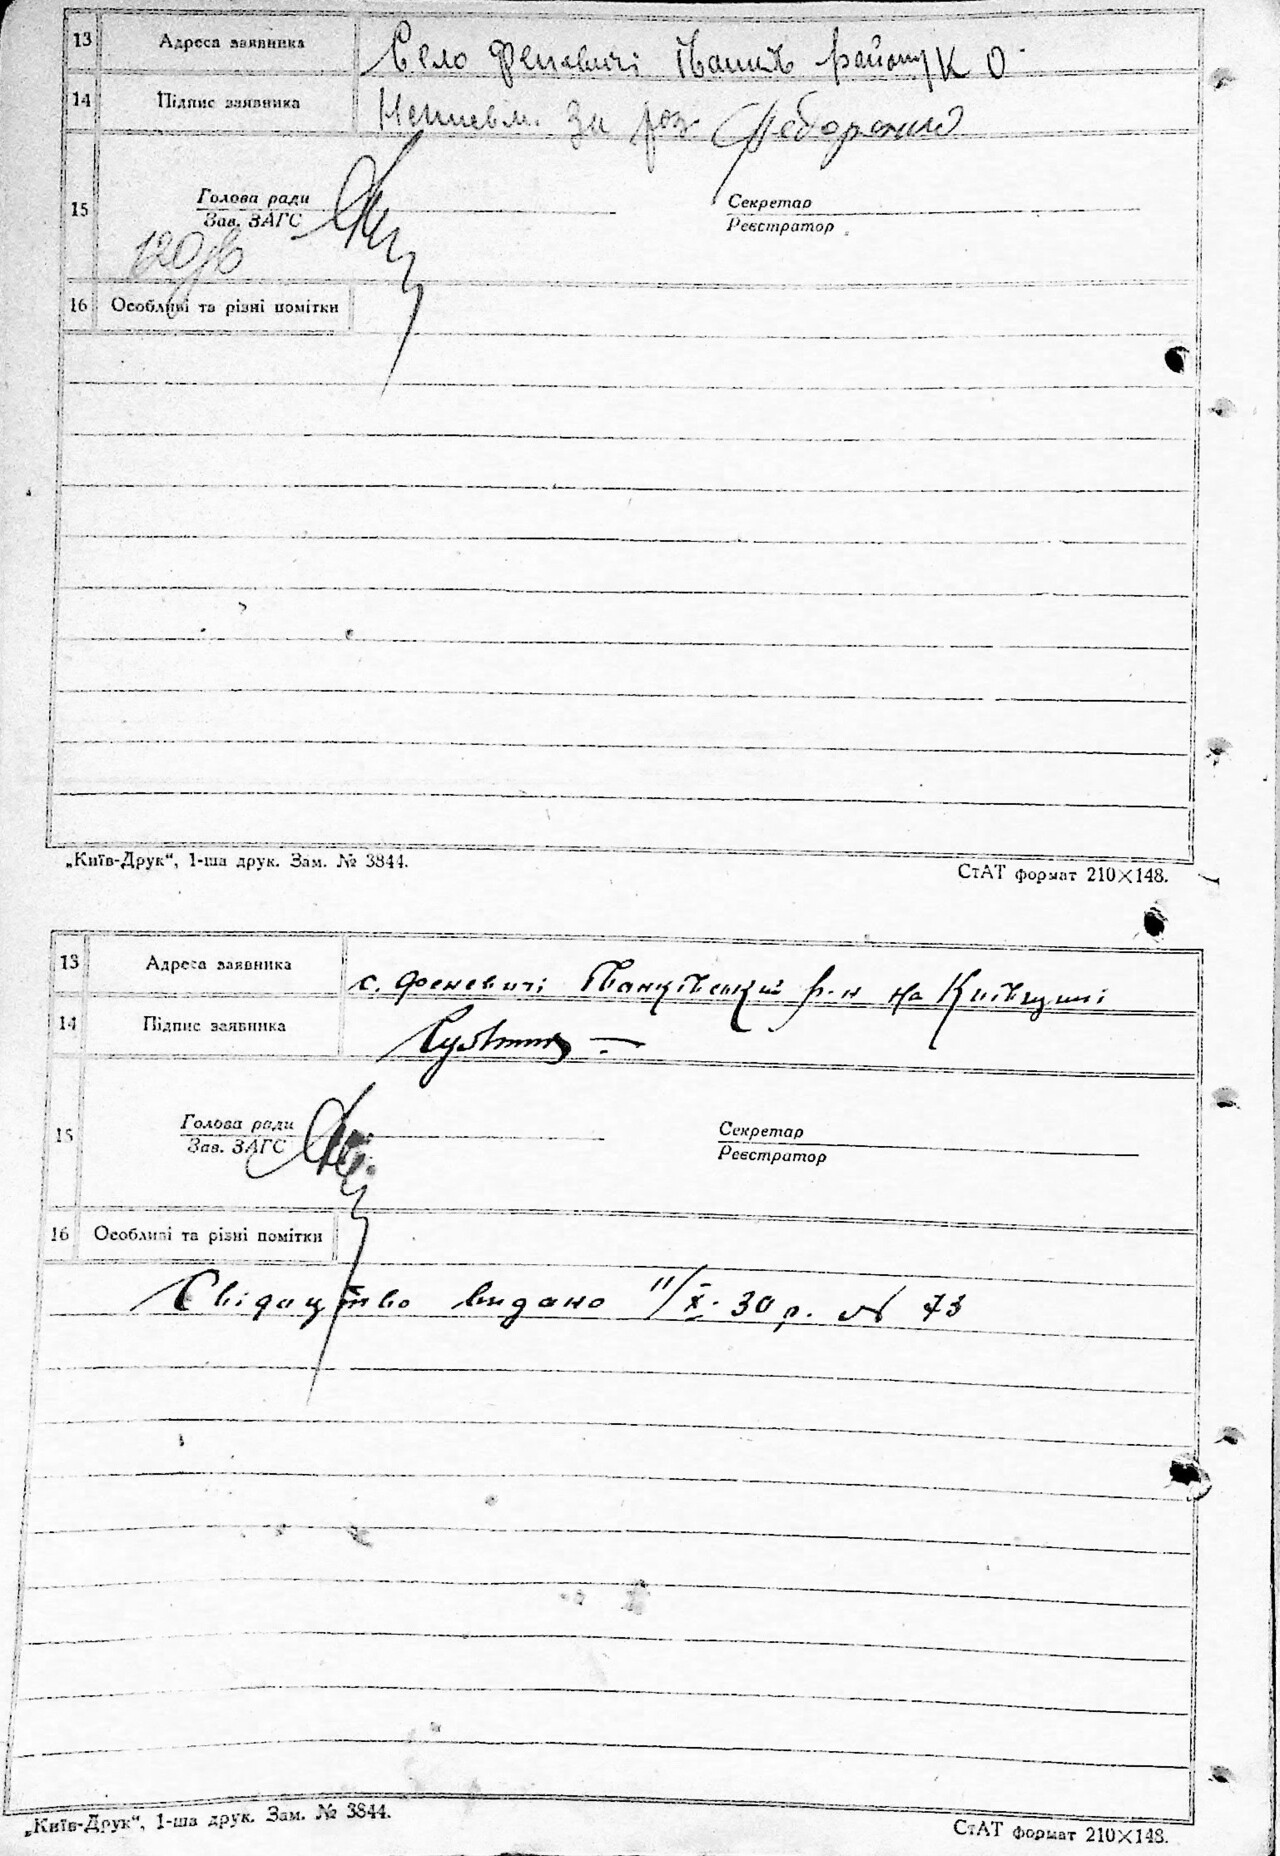 13 Адреса заявника Село Феневичі Іванків району К О
14 Підпис заявника Неписьм. За роз Федоренко
15 Голова ради Секретар
Зав. ЗАГС Реєстратор
16 Особливі та різні помітки
„Київ-Друк“, 1-ша друк. Зам. № 3844. СтАТ формат 210×148.
13 Адреса заявника с. Феневичі Іванківський р-н на Київщині
14 Підпис заявника
15 Голова ради Секретар
Зав. ЗАГС Реєстратор
16 Особливі та різні помітки
Свідацтво видано 11/X. 30 р. № 73
„Київ-Друк“, 1-ша друк. Зам. № 3844. СтАТ формат 210×148.